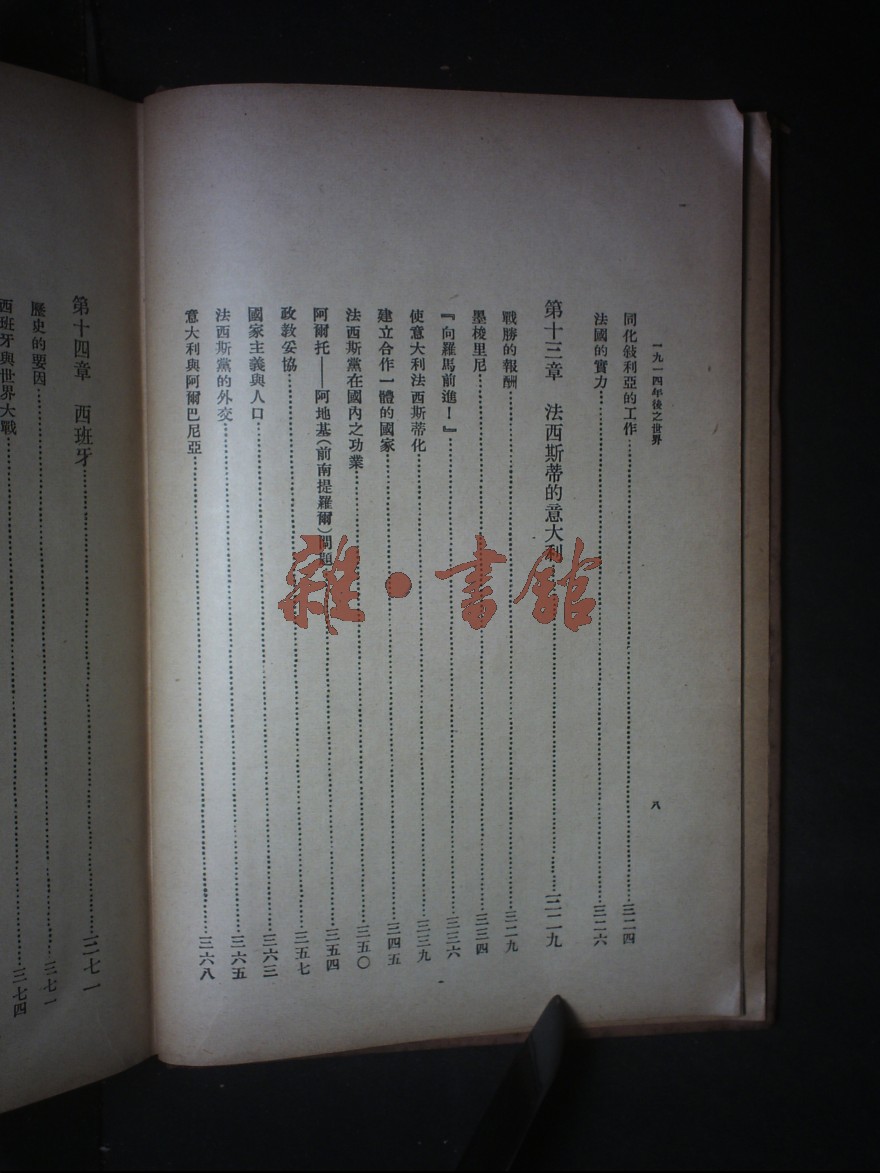 一九一四年後之世界
八
同化敍利亞的工作……三二四
法國的實力……三二六
第十三章　法西斯蒂的意大利……三二九
戰勝的報酬……三二九
墨梭里尼……三三四
『向羅馬前進！』……三三六
使意大利法西斯蒂化……三三九
建立合作一體的國家……三四五
法西斯黨在國內之功業……三五〇
阿爾托——阿地基(前南提羅爾)問題……三五四
政教妥協……三五七
國家主義與人口……三六三
法西斯黨的外交……三六五
意大利與阿爾巴尼亞……三六八
第十四章　西班牙……三七一
歷史的要因……三七一
西班牙與世界大戰……三七四
雜·書館